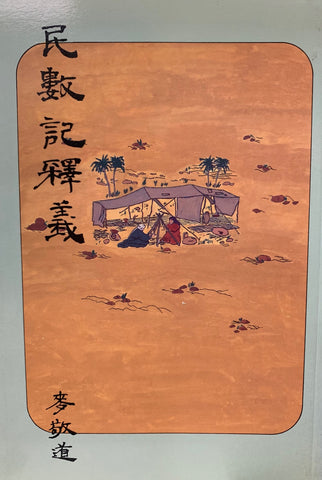 民數記釋義
麥敬道